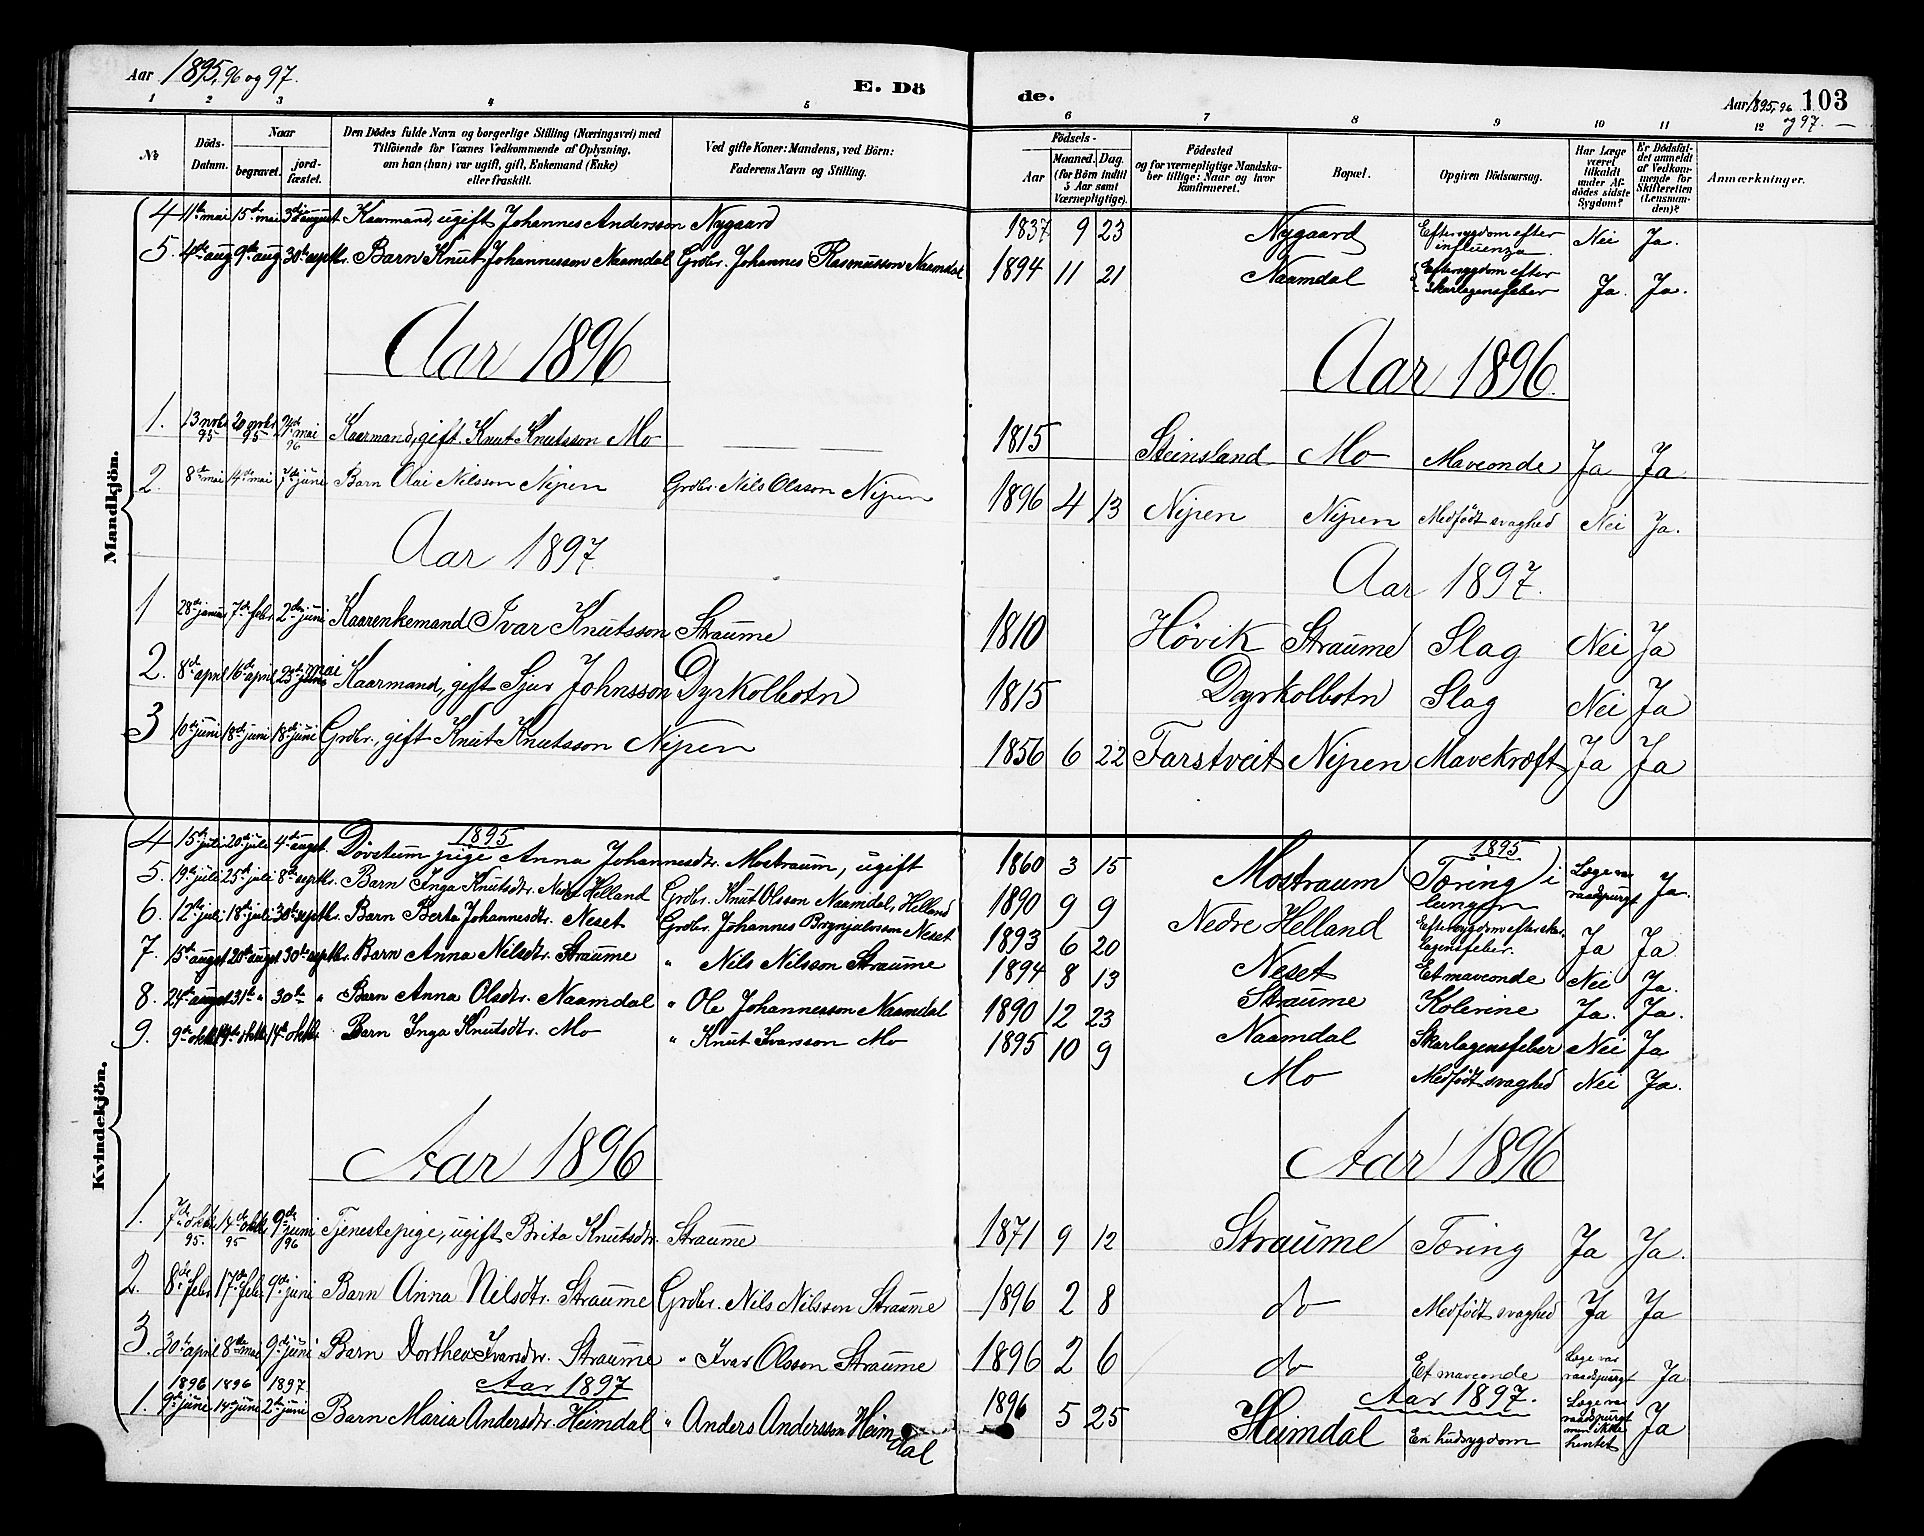 Aar 1895, 96 og 97.
E. Döde.
Aar 1895, 96 og 97. 103
1 2 3 4 5 6 7 8 9 10 11 12
No
Döds-Datum.
Naar
begravet.
jord-fæstet.
Den Dödes fulde Navn og borgerlige Stilling (Næringsvei) med
Tilföiende for Voxnes Vedkommende af Oplysning,
om han (hun) var ugift, gift, Enkemand (Enke)
eller fraskilt.
Ved gifte Koner: Mandens, ved Börn:
Faderens Navn og Stilling.
Födsels-
Aar
Maaned. Dag.
(for Börn indtil
5 Aar samt
Værnepligtige).
Födested
og for værnepligtige Mandska-
ber tillige: Naar og hvor
konfirmeret.
Bopæl.
Opgiven Dödsaarsag.
Har Læge
været
tilkaldt
under Af-
dödes sidste
Sygdom?
Er Dödsfal-
det anmeldt
af Vedkom-
mende for
Skifteretten
(Lensman-
den)?
Anmærkninger.
Mandkjön.
4 11te mai 15de mai 3die august Kaarmand, ugift Johannes Andersson Nygaard 1837 9 23 Nygaard Eftersygdom efter influenza Nei Ja.
5. 4de aug 9de aug 30te septbr. Barn Knut Johannesson Naamdal Grdbr. Johannes Rasmusson Naamdal 1894 11 21 Naamdal Eftersygdom efter Skarlagensfeber Ja. Ja.
Aar 1896 Aar 1896.
1. 13 novbr 95 20 novbr 95 24de mai 96 Kaarmand, gift Knut Knutsson Mo 1815 Steinsland Mo Maveonde Ja Ja
2. 8de mai 14de mai 7de juni Barn Olai Nilsson Nipen Grdbr. Nils Olsson Nipen 1896 4 13 Nipen Nipen Medfödt svaghed Nei Ja.
Aar 1897. Aar 1897.
1 28de januar 7de febr 2den juni Kaarenkemand Ivar Knutsson Straume 1810 Høvik Straume Slag Nei Ja
2. 8de april 16de april 23de mai Kaarmand, gift Sjur Johnsson Dyrkolbotn 1815 Dyrkolbotn Slag Nei Ja
3 10de juni 18de juni 18de juni Grdbr., gift Knut Knutsson Nipen 1856 6 22 Farstveit Nipen Mavekræft Ja Ja
Kvindekjön.
1895 1895
4 15de juli 20de juli 4de augst. Døvstum pige Anna Johannesdtr. Mostraum, ugift 1860 3 15 Mostraum Tæring i lungen Læge var raadspurgt Ja.
5. 19de juli 25de juli 8de septbr. Barn Inga Knutsdtr. Nedre Helland Grdbr. Knut Olsson Naamdal, Helland 1890 9 9 Nedre Helland Eftersygdom efter skarlagensfeber. Ja Ja
6. 12te juli 18de juli 30te septbr. Barn Berta Johannesdtr. Neset Grdbr. Johannes Brynjulvsson Neset 1893 6 20 Neset Et maveonde Nei Ja.
7. 15de augst 20de augst 30te septbr. Barn Anna Nilsdtr. Straume " Nils Nilsson Straume 1894 8 13 Straume Kolerine Ja. Ja.
8. 24de augst 31te " 30te " Barn Anna Olsdtr. Naamdal " Ole Johannesson Naamdal 1890 12 23 Naamdal Skarlagensfeber Nei Ja
9. 9de oktbr 14de oktbr 14de oktbr. Barn Inga Knutsdtr. Mo " Knut Ivarsson Mo 1895 10 9 Mo Medfödt svaghed Nei Ja.
Aar 1896 Aar 1896
1. 7de oktbr 95. 14de oktbr 95 9de juni 96 Tjenestepige, ugift Brita Knutsdtr. Straume 1871 9 12 Straume Tæring Ja Ja.
2. 8de febr 17de febr. 9de juni Barn Anna Nilsdtr. Straume Grdbr. Nils Nilsson Straume 1896 2 8 do Medfödt svaghed Ja Ja
3. 30te april 8de mai 9de juni Barn Dorthea Ivarsdtr. Straume " Ivar Olsson Straume 1896 2 6 do Et maveonde Læge var raadspurgt Ja
Aar 1897 Aar 1897.
1. 1896 9de june 1896 14de juni 1897 2den juni Barn Maria Andersdtr. Heimdal " Anders Andersson Heimdal 1896 5 25 Heimdal En hudsygdom Læge var raadspurgt men ikke hentet Ja